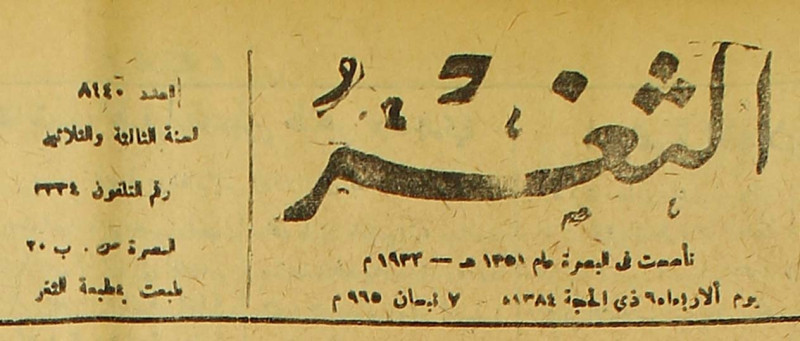 الثغر
تأسست في البصرة عام ١٣٥١ هـ — ١٩٣٣ م
يوم الاربعاء ٦ ذي الحجة ١٣٨٤ هـ ٧ نيسان ٩٦٥ م
العدد ٨١٤٠
لسنة الثالثة والثلاثين
رقم التلفون ٣٣٣٤
البصرة ص . ب ٢٠
طبعت بمطبعة الثغر